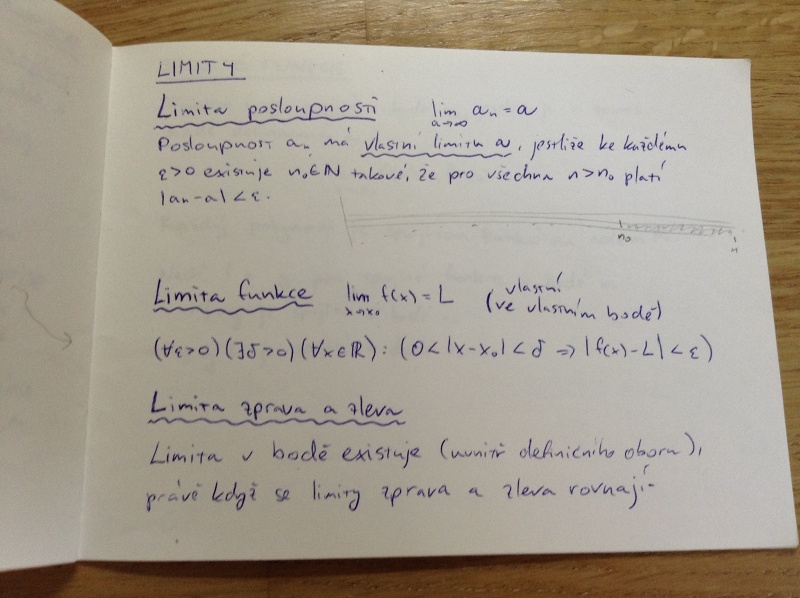 LIMITY
Limita posloupností lim aₙ = a
a→∞
Posloupnost aₙ má vlastní limitu a, jestliže ke každému
ε>0 existuje n₀∈ℕ takové, že pro všechna n>n₀ platí
|aₙ-a|<ε.
n₀ n
Limita funkce lim f(x) = L (vlastní
x→x₀ ve vlastním bodě)
(∀ε>0)(∃δ>0)(∀x∈ℝ): (0<|x-x₀|<δ ⇒ |f(x)-L|<ε)
Limita zprava a zleva
Limita v bodě existuje (uvnitř definičního oboru),
právě když se limity zprava a zleva rovnají.